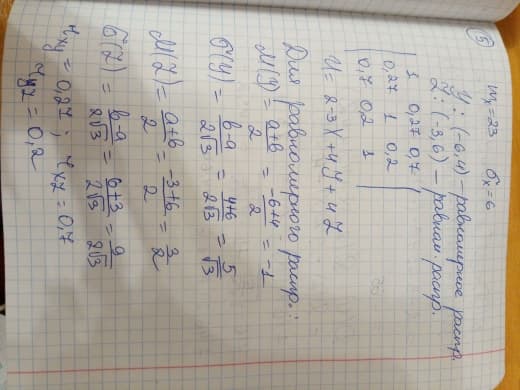 5 mx = 23 σx = 6
Y: (-6, 4) – равномерное распр.
Z: (-3, 6) – равном. распр.
| 1 0,27 0,7 |
| 0,27 1 0,2 |
| 0,7 0,2 1 |
U = 2-3X+4Y+4Z
Для равномерного распр.:
M(Y) = (a+b)/2 = (-6+4)/2 = -1
σ(Y) = (b-a)/(2√3) = (4+6)/(2√3) = 5/√3
M(Z) = (a+b)/2 = (-3+6)/2 = 3/2
σ(Z) = (b-a)/(2√3) = (6+3)/(2√3) = 9/(2√3)
rxy = 0,27 ; rxz = 0,7
ryz = 0,2